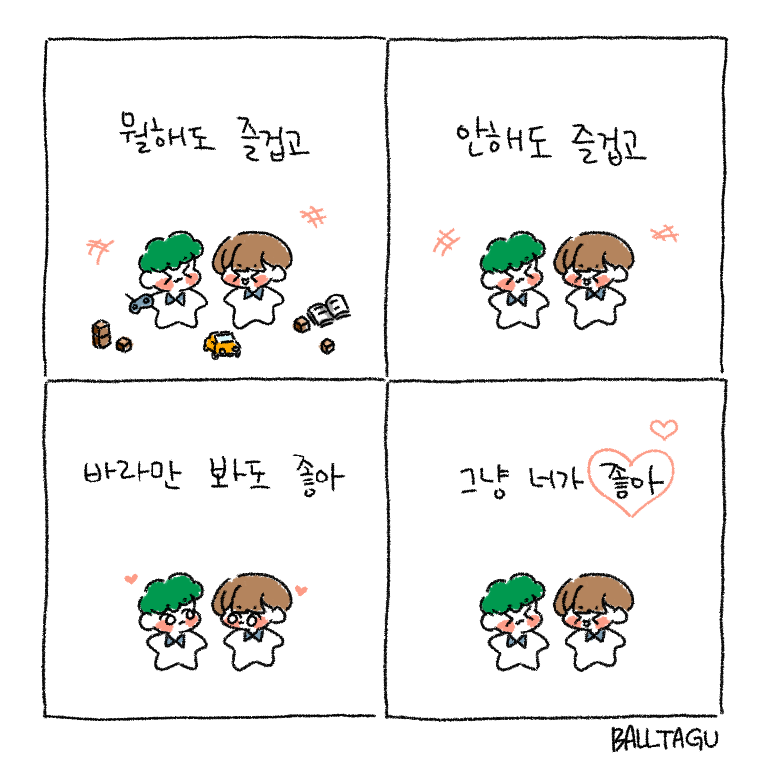 뭘해도 즐겁고
안해도 즐겁고
바라만 봐도 좋아
그냥 너가 좋아
BALLTAGU